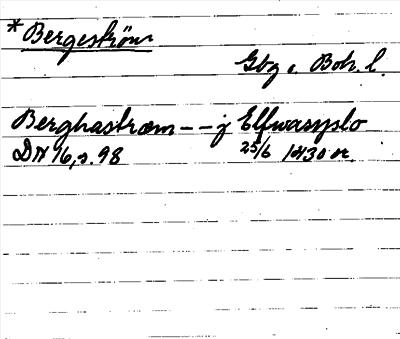 * Bergeström
Gbg o. Boh. l.
Berghastroem -- j Elfwasyslo
DN 16, s. 98 25/6 1430 or.